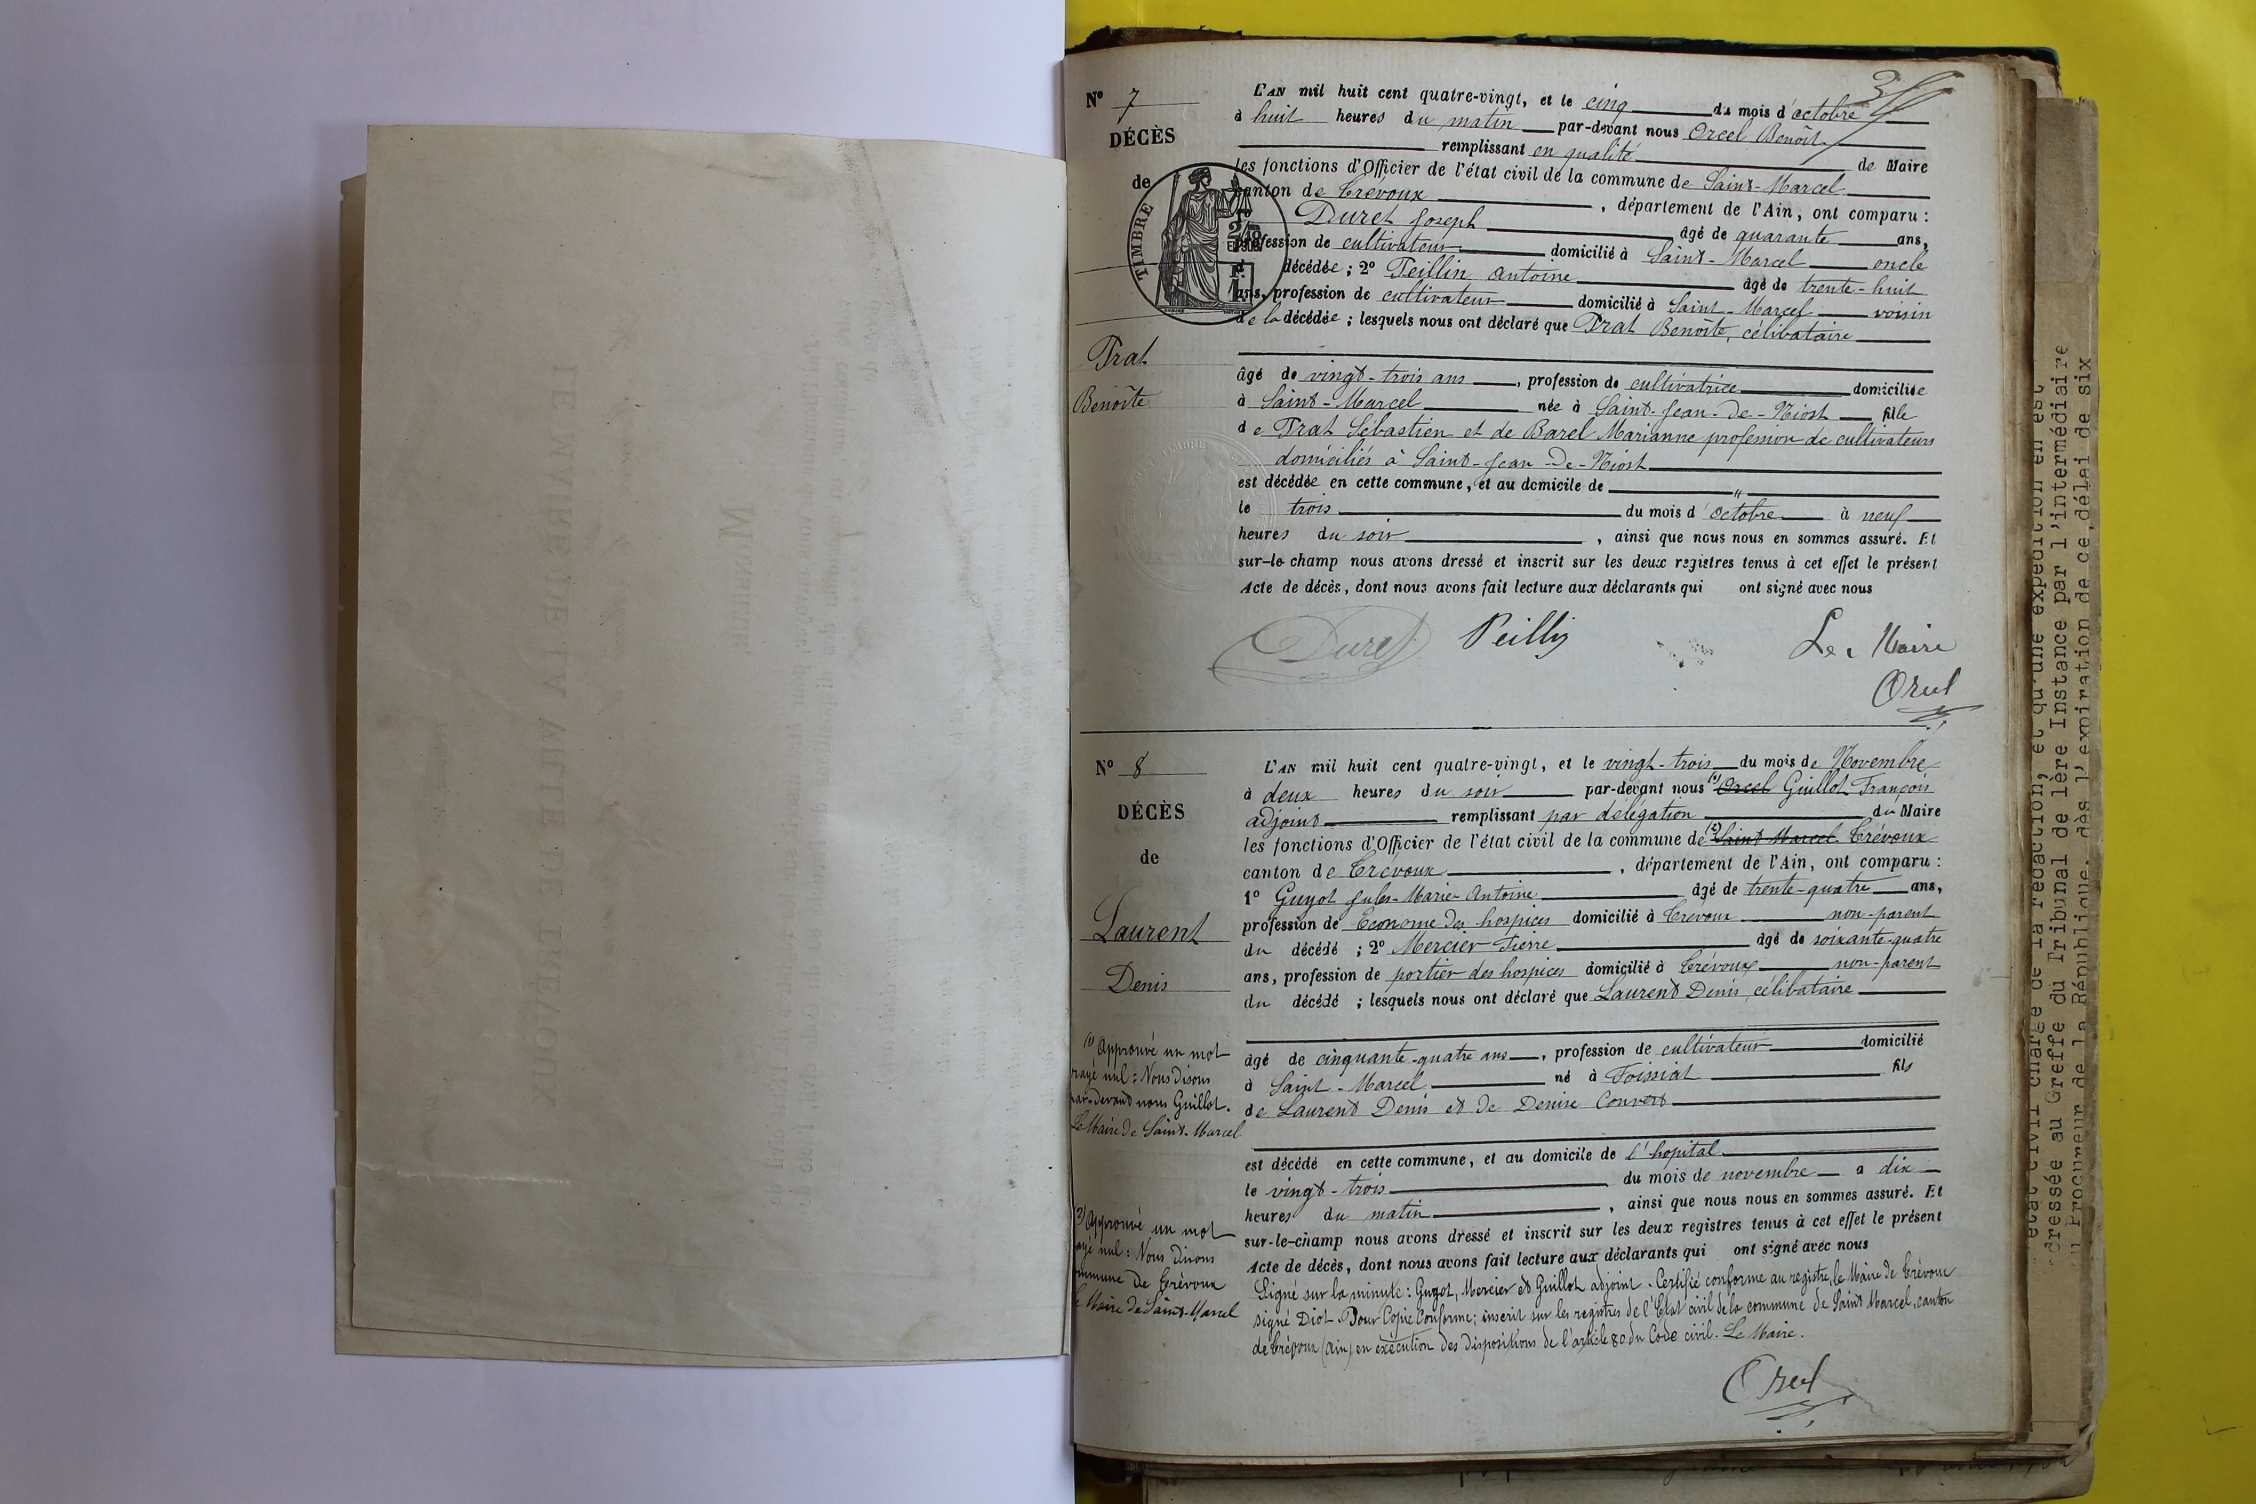 3
N° 7
DÉCÈS
de
TIMBRE
Prat
Benoîte
L'AN mil huit cent quatre-vingt, et le cinq du mois d'octobre
à huit heures du matin par-devant nous Orcel Benoît
remplissant en qualité de Maire
les fonctions d'Officier de l'état civil de la commune de Saint-Marcel
canton de Trévoux, département de l'Ain, ont comparu :
1° Duret Joseph âgé de quarante ans,
profession de cultivateur domicilié à Saint-Marcel oncle
décédée ; 2° Peillin Antoine âgé de trente-huit
ans, profession de cultivateur domicilié à Saint-Marcel voisin
de la décédée ; lesquels nous ont déclaré que Prat Benoîte, célibataire
âgé de vingt-trois ans, profession de cultivatrice domiciliée
à Saint-Marcel née à Saint-Jean-de-Niost fille
de Prat Sébastien et de Barel Marianne profession de cultivateurs
domiciliés à Saint-Jean-de-Niost
est décédée en cette commune, et au domicile de "
le trois du mois d'octobre à neuf
heures du soir, ainsi que nous nous en sommes assuré. Et
sur-le-champ nous avons dressé et inscrit sur les deux registres tenus à cet effet le présent
Acte de décès, dont nous avons fait lecture aux déclarants qui ont signé avec nous
Duret Peillin Le Maire
Orcel
N° 8
DÉCÈS
de
Laurent
Denis
L'AN mil huit cent quatre-vingt, et le vingt-trois du mois de Novembre
à deux heures du soir par-devant nous (1) Orcel Guillot François
adjoint remplissant par délégation du Maire
les fonctions d'Officier de l'état civil de la commune de (2) Saint Marcel Trévoux
canton de Trévoux, département de l'Ain, ont comparu :
1° Guyot Jules-Marie-Antoine âgé de trente-quatre ans,
profession de Econome des hospices domicilié à Trévoux non-parent
du décédé ; 2° Mercier Pierre âgé de soixante-quatre
ans, profession de portier des hospices domicilié à Trévoux non-parent
du décédé ; lesquels nous ont déclaré que Laurent Denis, célibataire
âgé de cinquante-quatre ans, profession de cultivateur domicilié
à Saint-Marcel né à Foissiat fils
de Laurent Denis et de Denise Convert
est décédé en cette commune, et au domicile de l'hopital
le vingt-trois du mois de novembre à dix
heures du matin, ainsi que nous nous en sommes assuré. Et
sur-le-champ nous avons dressé et inscrit sur les deux registres tenus à cet effet le présent
Acte de décès, dont nous avons fait lecture aux déclarants qui ont signé avec nous
Signé sur la minute : Guyot, Mercier et Guillot adjoint. Certifié conforme au registre, le Maire de Trévoux
signé Diot. Pour Copie Conforme ; inscrit sur les registres de l'Etat civil de la commune de Saint Marcel, canton
de Trévoux (Ain) en exécution des dispositions de l'article 80 du Code civil. Le Maire.
Orcel
(1) Approuvé un mot
rayé nul : Nous disons
par-devant nous Guillot.
Le Maire de Saint-Marcel
(2) Approuvé un mot
rayé nul : Nous disons
commune de Trévoux
Le Maire de Saint-Marcel
état civil chargé de la rédaction, et qu'une expédition en est
dressée au Greffe du Tribunal de 1ère Instance par l'intermédiaire
du Procureur de la République, dès l'expiration de ce délai de six
LE MAIRE DE LA VILLE DE TREVOUX
MONSIEUR